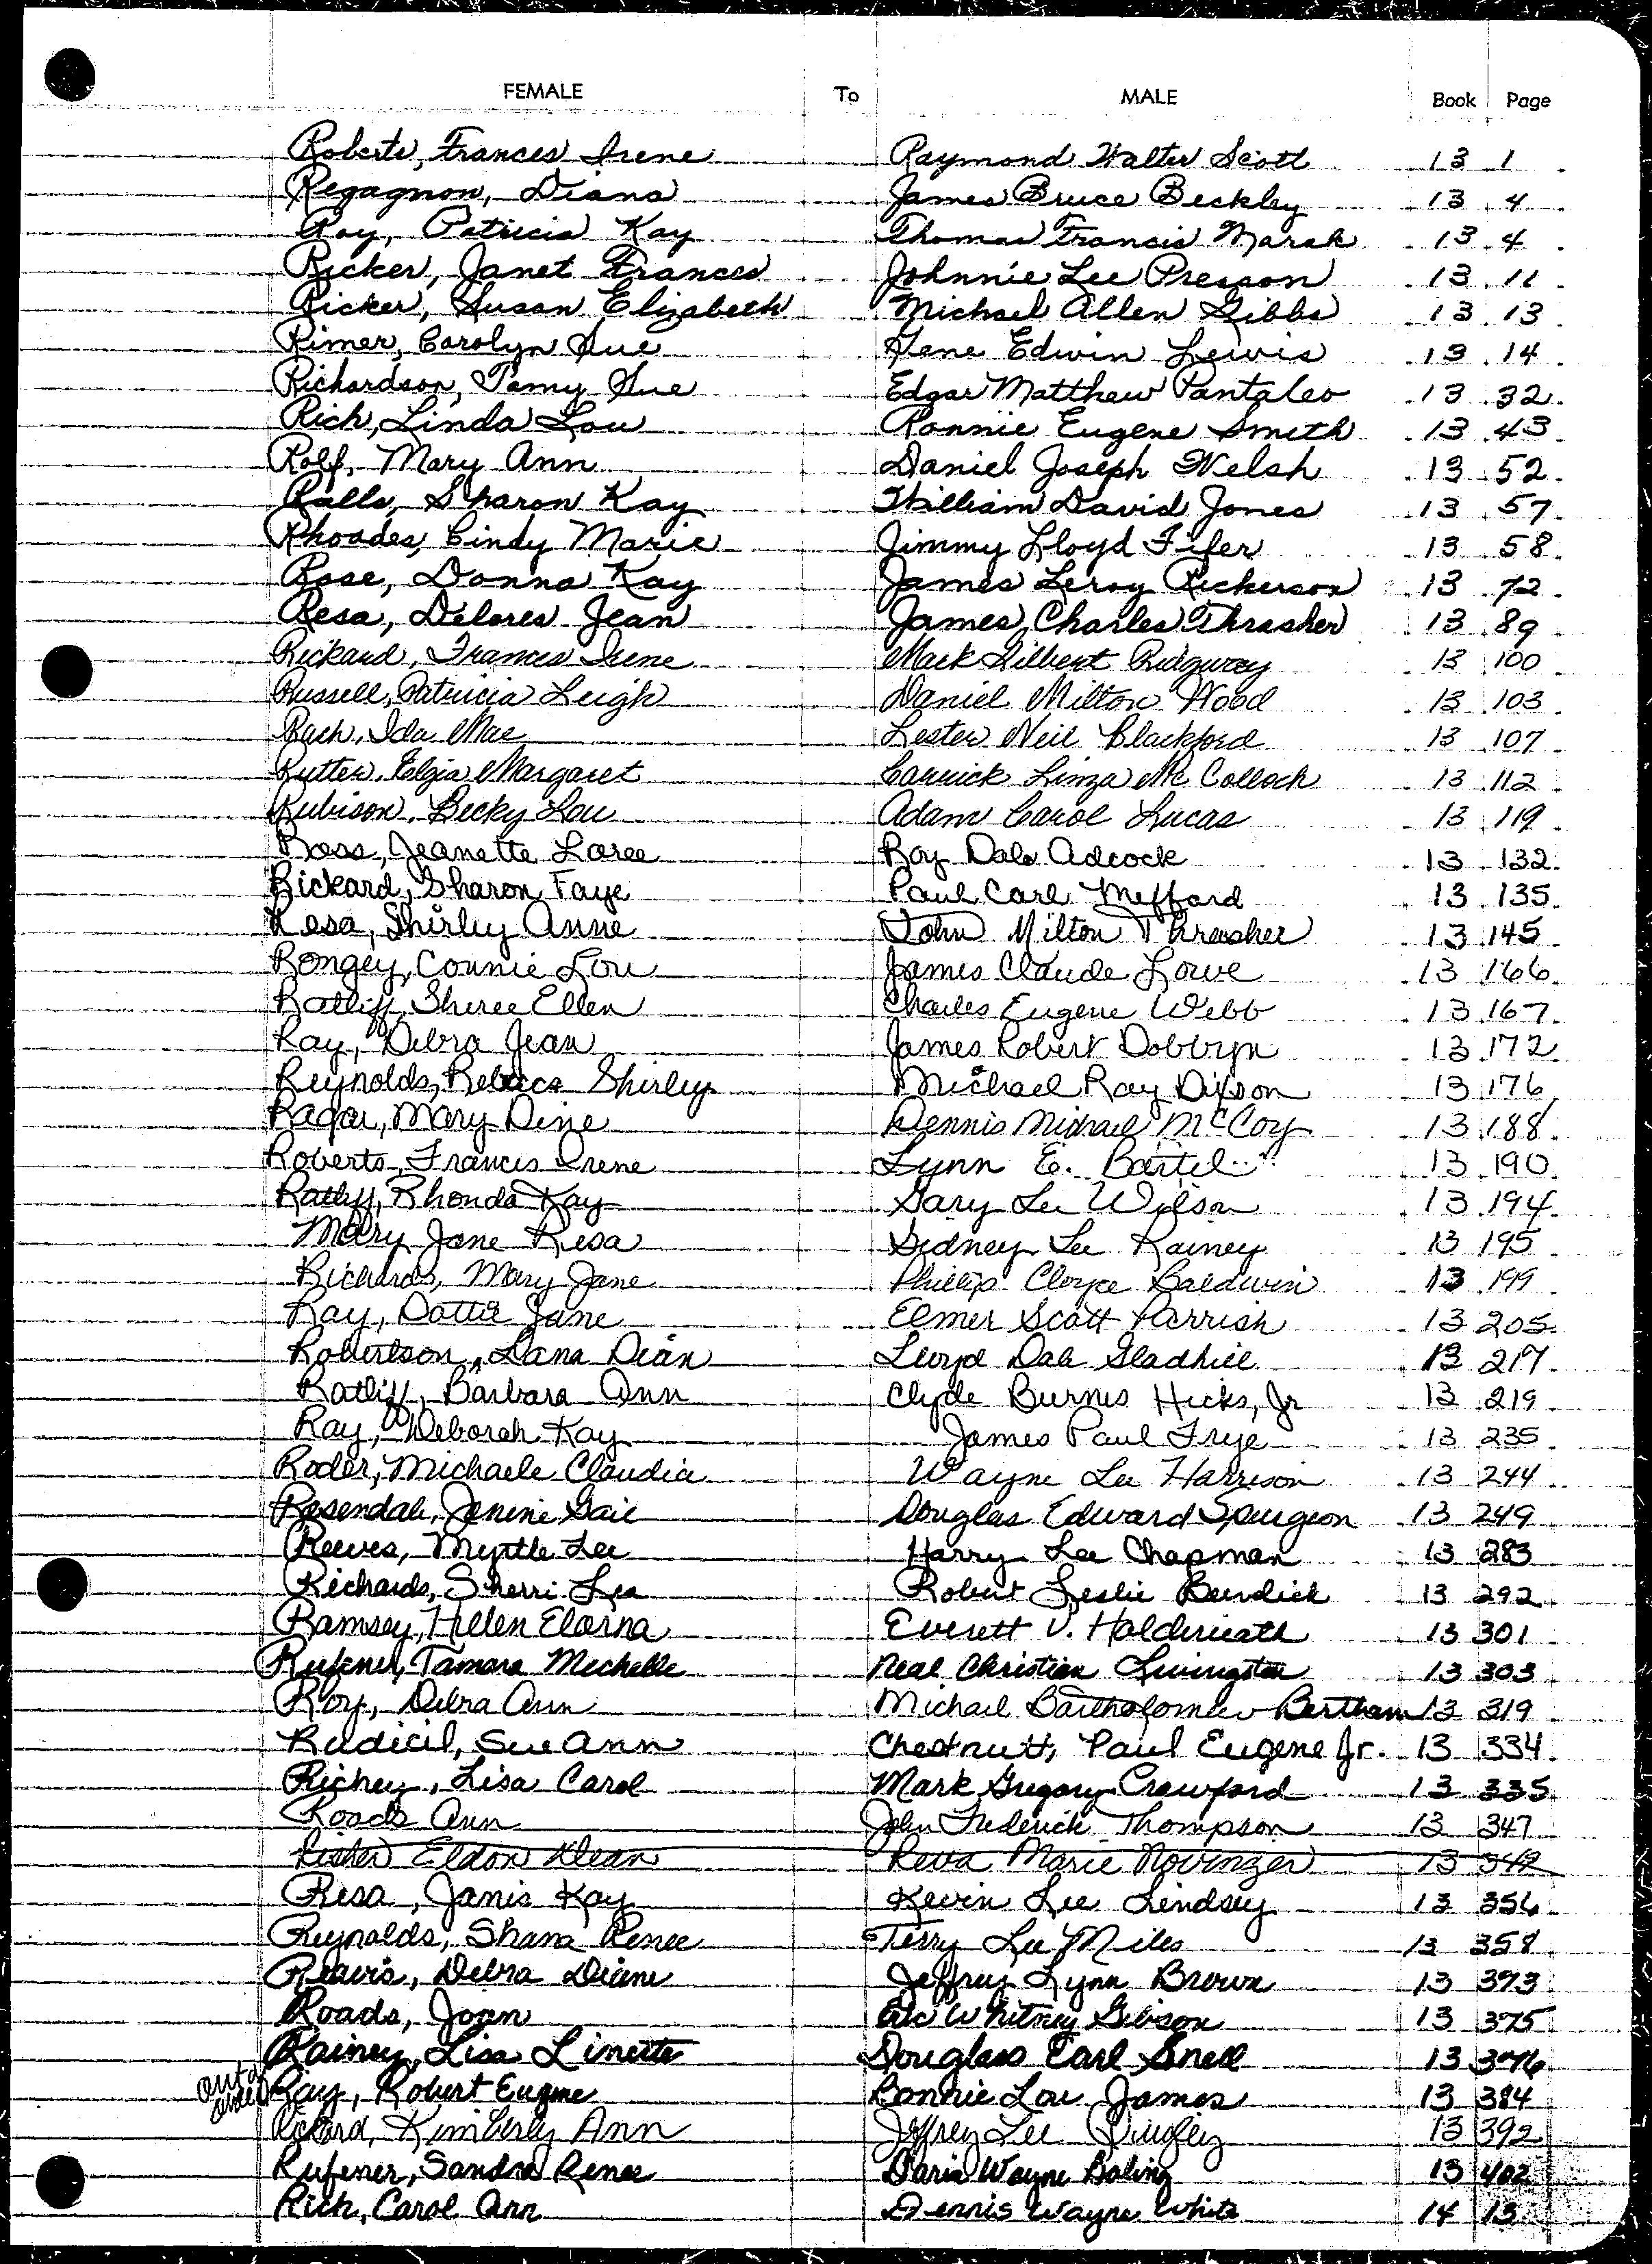 FEMALE To MALE Book Page
Roberts, Frances Irene Raymond Walter Scott 13 1
Regagnon, Diana James Bruce Beckley 13 4
Roy, Patricia Kay Thomas Francis Marak 13 4
Ricker, Janet Frances Johnnie Lee Presson 13 11
Ricker, Susan Elizabeth Michael Allen Gibbs 13 13
Rimer, Carolyn Sue Gene Edwin Lewis 13 14
Richardson, Tamy Sue Edgar Matthew Pantaleo 13 32
Rich, Linda Lou Ronnie Eugene Smith 13 43
Rolf, Mary Ann Daniel Joseph Welsh 13 52
Ralls, Sharon Kay William David Jones 13 57
Rhoades, Cindy Marie Jimmy Lloyd Fifer 13 58
Rose, Donna Kay James Leroy Rickerson 13 72
Resa, Delores Jean James Charles Thrasher 13 89
Rickard, Frances Irene Mark Gilbert Ridgway 13 100
Russell, Patricia Leigh Daniel Milton Wood 13 103
Ida Mae Lester Neil Blackford 13 107
Rutter, Elgia Margaret Carrick Linza McColloch 13 112
Rubison, Becky Lou Adam Carol Lucas 13 119
Ross, Jeanette Loree Roy Dale Adcock 13 132
Rickard, Sharon Faye Paul Carl Mefford 13 135
Resa, Shirley Anne John Milton Thrasher 13 145
Rongey, Connie Lou James Claude Lowe 13 166
Ratliff, Sheree Ellen Charles Eugene Webb 13 167
Ray, Debra Jean James Robert Dobbyn 13 172
Reynolds, Rebecca Shirley Michael Ray Dixson 13 176
Ragar, Mary Dine Dennis Michael McCoy 13 188
Roberts, Frances Irene Lynn E. Bartel 13 190
Ratliff, Rhonda Kay Gary Lee Wilson 13 194
Mary Jane Resa Sidney Lee Rainey 13 195
Richards, Mary Jane Phillip Cloyce Baldwin 13 199
Ray, Dottie Jane Elmer Scott Parrish 13 205
Robertson, Dana Dian Lloyd Dale Gladhill 13 217
Ratliff, Barbara Ann Clyde Burnes Hicks, Jr 13 219
Ray, Deborah Kay James Paul Frye 13 235
Roder, Michaele Claudia Wayne Lee Harrison 13 244
Rosendale, Jenine Gail Douglas Edward Spurgeon 13 249
Reeves, Myrtle Lee Harry Lee Chapman 13 283
Richards, Sherri Lea Robert Leslie Burdick 13 292
Ramsey, Hellen Elorna Everett V. Holdereath 13 301
Rufener, Tamara Mechelle Neal Christian Livingston 13 303
Roy, Debra Ann Michael Bartholomew Bertham 13 319
Radicil, Sue Ann Chestnutt, Paul Eugene Jr. 13 334
Richey, Lisa Carol Mark Gregory Crawford 13 335
Roads Ann John Frederick Thompson 13 347
Risher Eldon Dean Reva Marie Novinger 13 349
Resa, Janis Kay Kevin Lee Lindsey 13 356
Reynolds, Shana Renee Terry Lee Miles 13 358
Reavis, Debra Diane Jeffrey Lynn Brown 13 373
Roads, Joan Eric Whitney Gibson 13 375
Rainey, Lisa Linette Douglass Earl Snell 13 376
Ray, Robert Eugene Bonnie Lou James 13 384
Rickard, Kimberly Ann Jeffrey Lee Quigley 13 392
Rufener, Sandra Renee Darin Wayne Boling 13 402
Rich, Carol Ann Dennis Wayne White 14 13